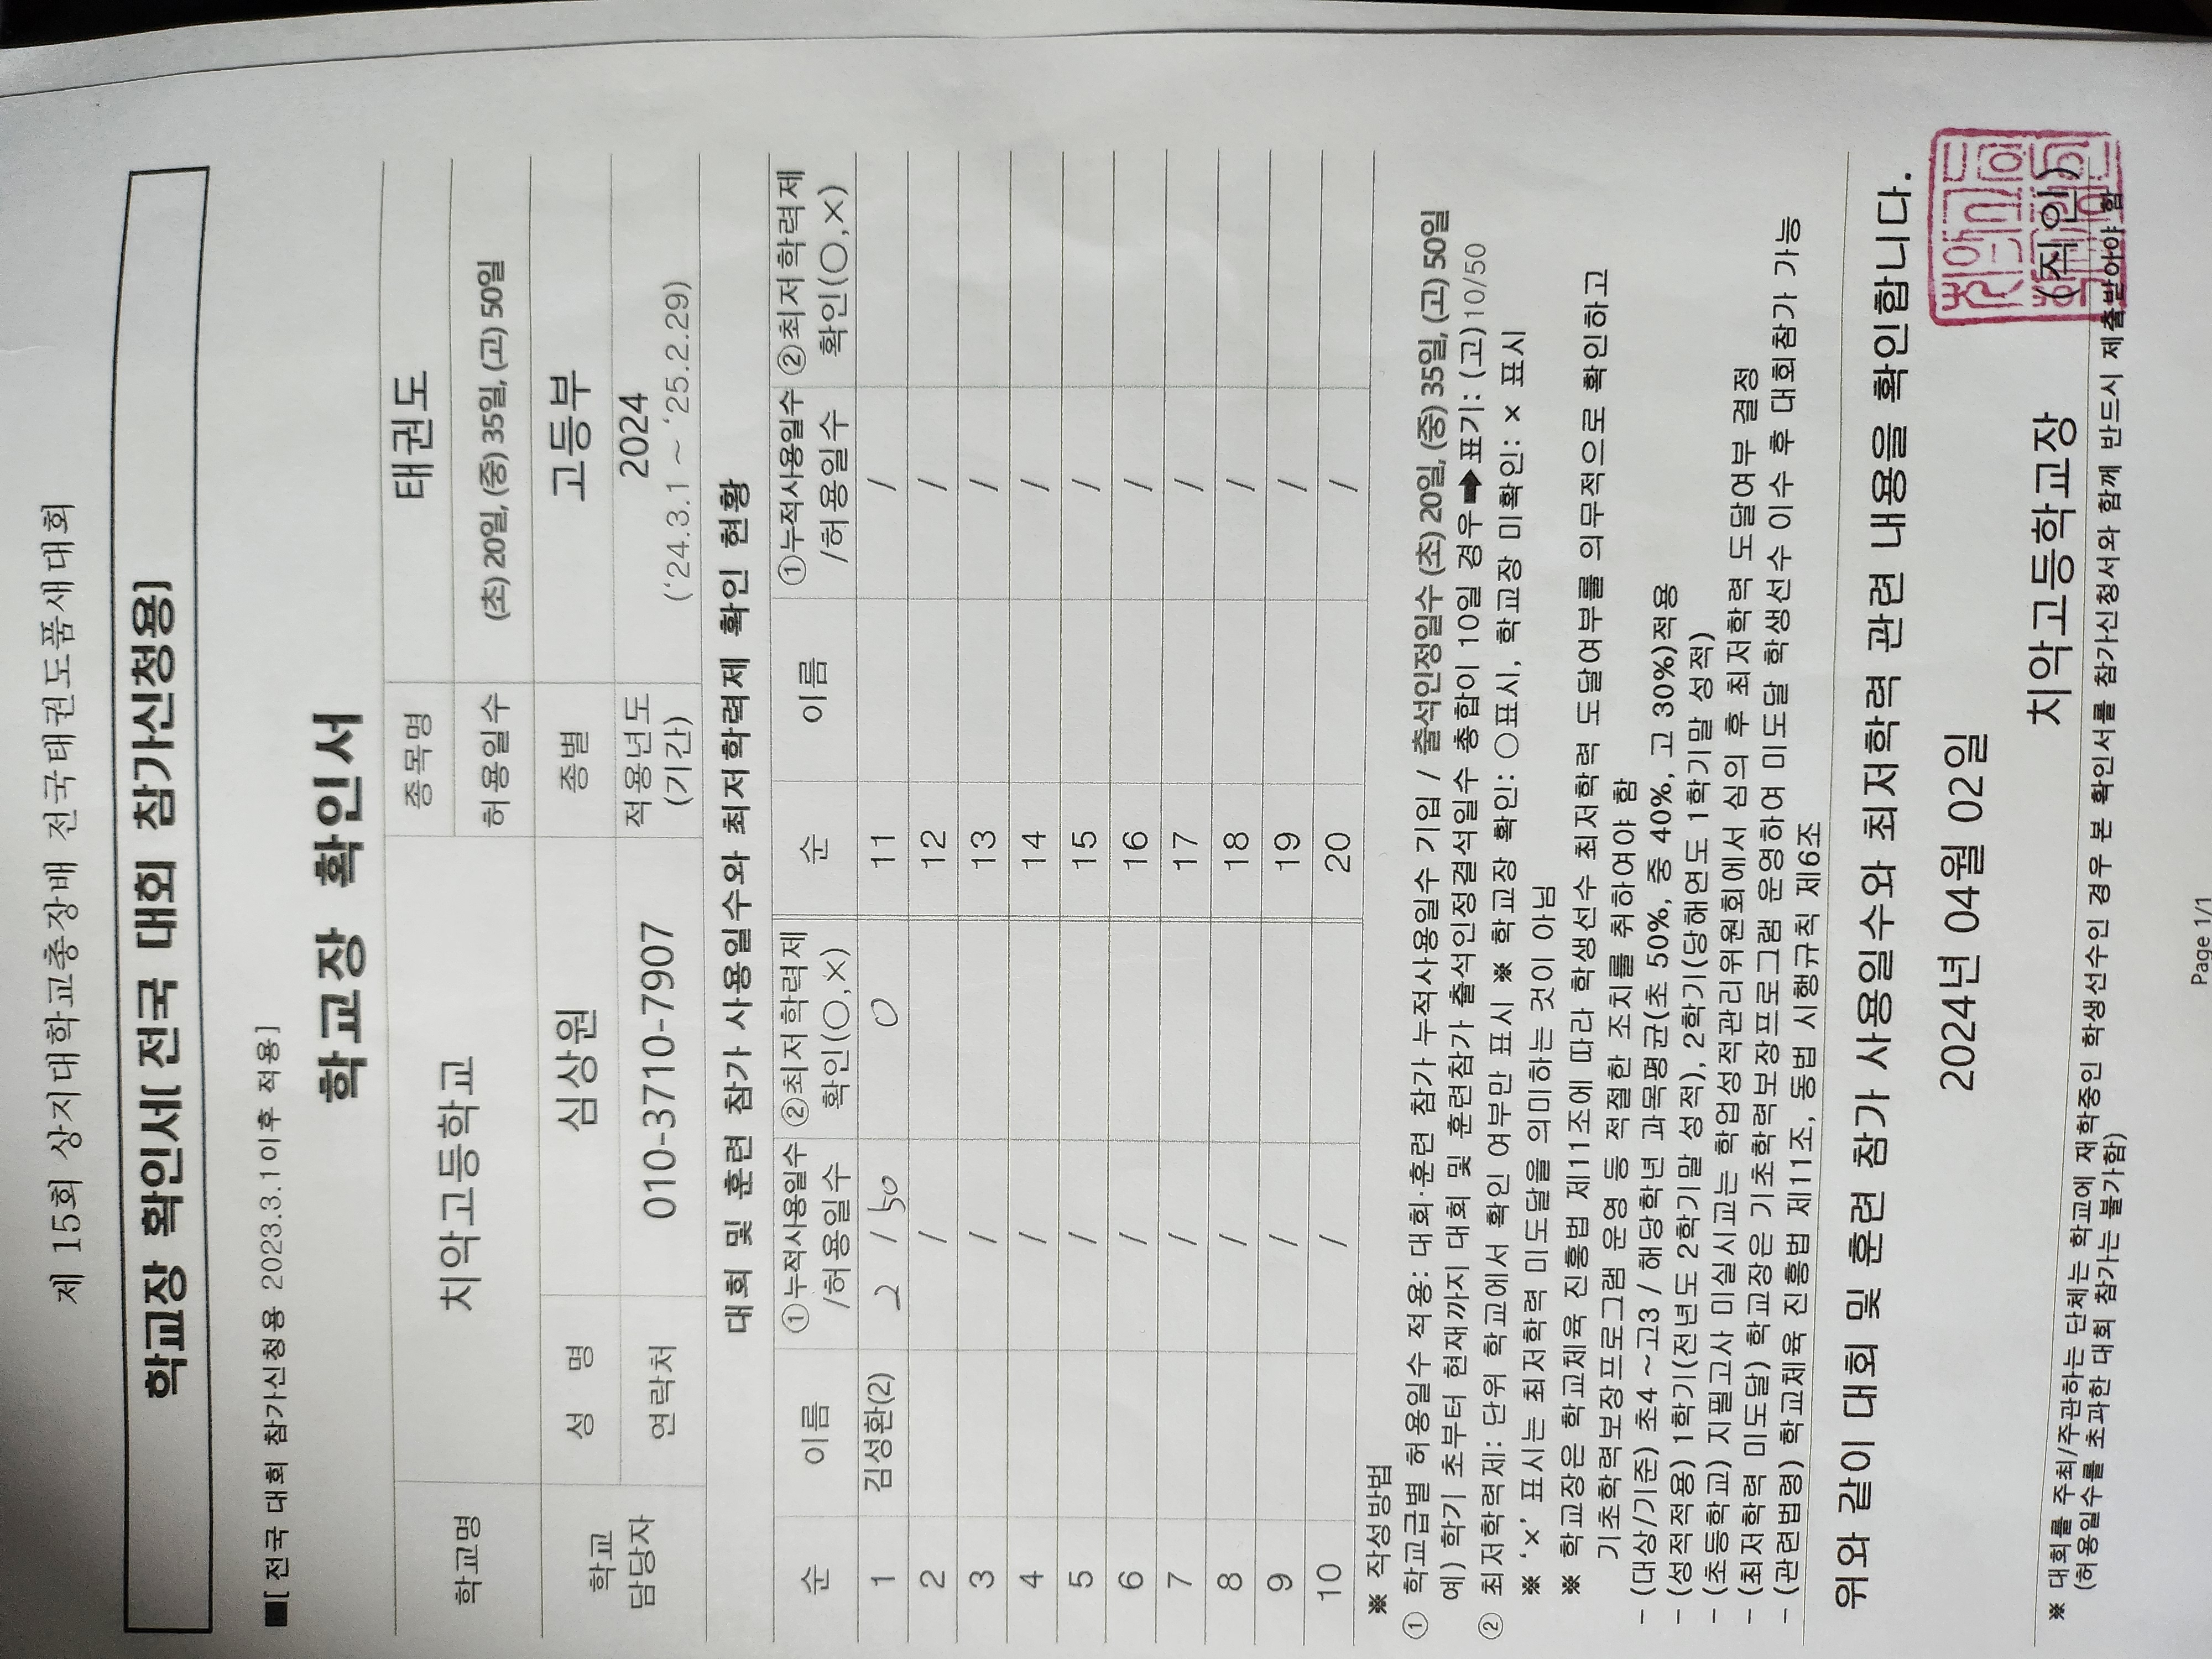 제 15회 상지대학교총장배 전국태권도품새대회
학교장 확인서[ 전국 대회 참가신청용]
■[ 전국 대회 참가신청용 2023.3.1이후 적용]
학교장 확인서
학교명 치악고등학교 종목명 태권도
허용일수 (초) 20일, (중) 35일, (고) 50일
학교 담당자 성 명 심상원 종별 고등부
연락처 010-3710-7907 적용년도 (기간) 2024
(‘24.3.1 ~ ‘25.2.29)
대회 및 훈련 참가 사용일수와 최저학력제 확인 현황
순 이름 ①누적사용일수 /허용일수 ②최저학력제 확인(○,×) 순 이름 ①누적사용일수 /허용일수 ②최저학력제 확인(○,×)
1 김성환(2) 2 / 50 ○ 11 /
2 / 12 /
3 / 13 /
4 / 14 /
5 / 15 /
6 / 16 /
7 / 17 /
8 / 18 /
9 / 19 /
10 / 20 /
※ 작성방법
① 학교급별 허용일수 적용: 대회·훈련 참가 누적사용일수 기입 / 출석인정일수 (초) 20일, (중) 35일, (고) 50일
예) 학기 초부터 현재까지 대회 및 훈련참가 출석인정결석일수 총합이 10일 경우➡표기: (고)10/50
② 최저학력제: 단위 학교에서 확인 여부만 표시 ※ 학교장 확인: ○표시, 학교장 미확인: × 표시
※ ‘×’ 표시는 최저학력 미도달을 의미하는 것이 아님
※ 학교장은 학교체육 진흥법 제11조에 따라 학생선수 최저학력 도달여부를 의무적으로 확인하고
기초학력보장프로그램 운영 등 적절한 조치를 취하여야 함
- (대상/기준) 초4 ~고3 / 해당학년 과목평균(초 50%, 중 40%, 고 30%)적용
- (성적적용) 1학기(전년도 2학기말 성적), 2학기(당해연도 1학기말 성적)
- (초등학교) 지필고사 미실시교는 학업성적관리위원회에서 심의 후 최저학력 도달여부 결정
- (최저학력 미도달) 학교장은 기초학력보장프로그램 운영하여 미도달 학생선수 이수 후 대회참가 가능
- (관련법령) 학교체육 진흥법 제11조, 동법 시행규칙 제6조
위와 같이 대회 및 훈련 참가 사용일수와 최저학력 관련 내용을 확인합니다.
2024년 04월 02일
치악고등학교장 (직인)
※ 대회를 주최/주관하는 단체는 학교에 재학중인 학생선수인 경우 본 확인서를 참가신청서와 함께 반드시 제출받아야 함
(허용일수를 초과한 대회 참가는 불가함)
Page 1/1